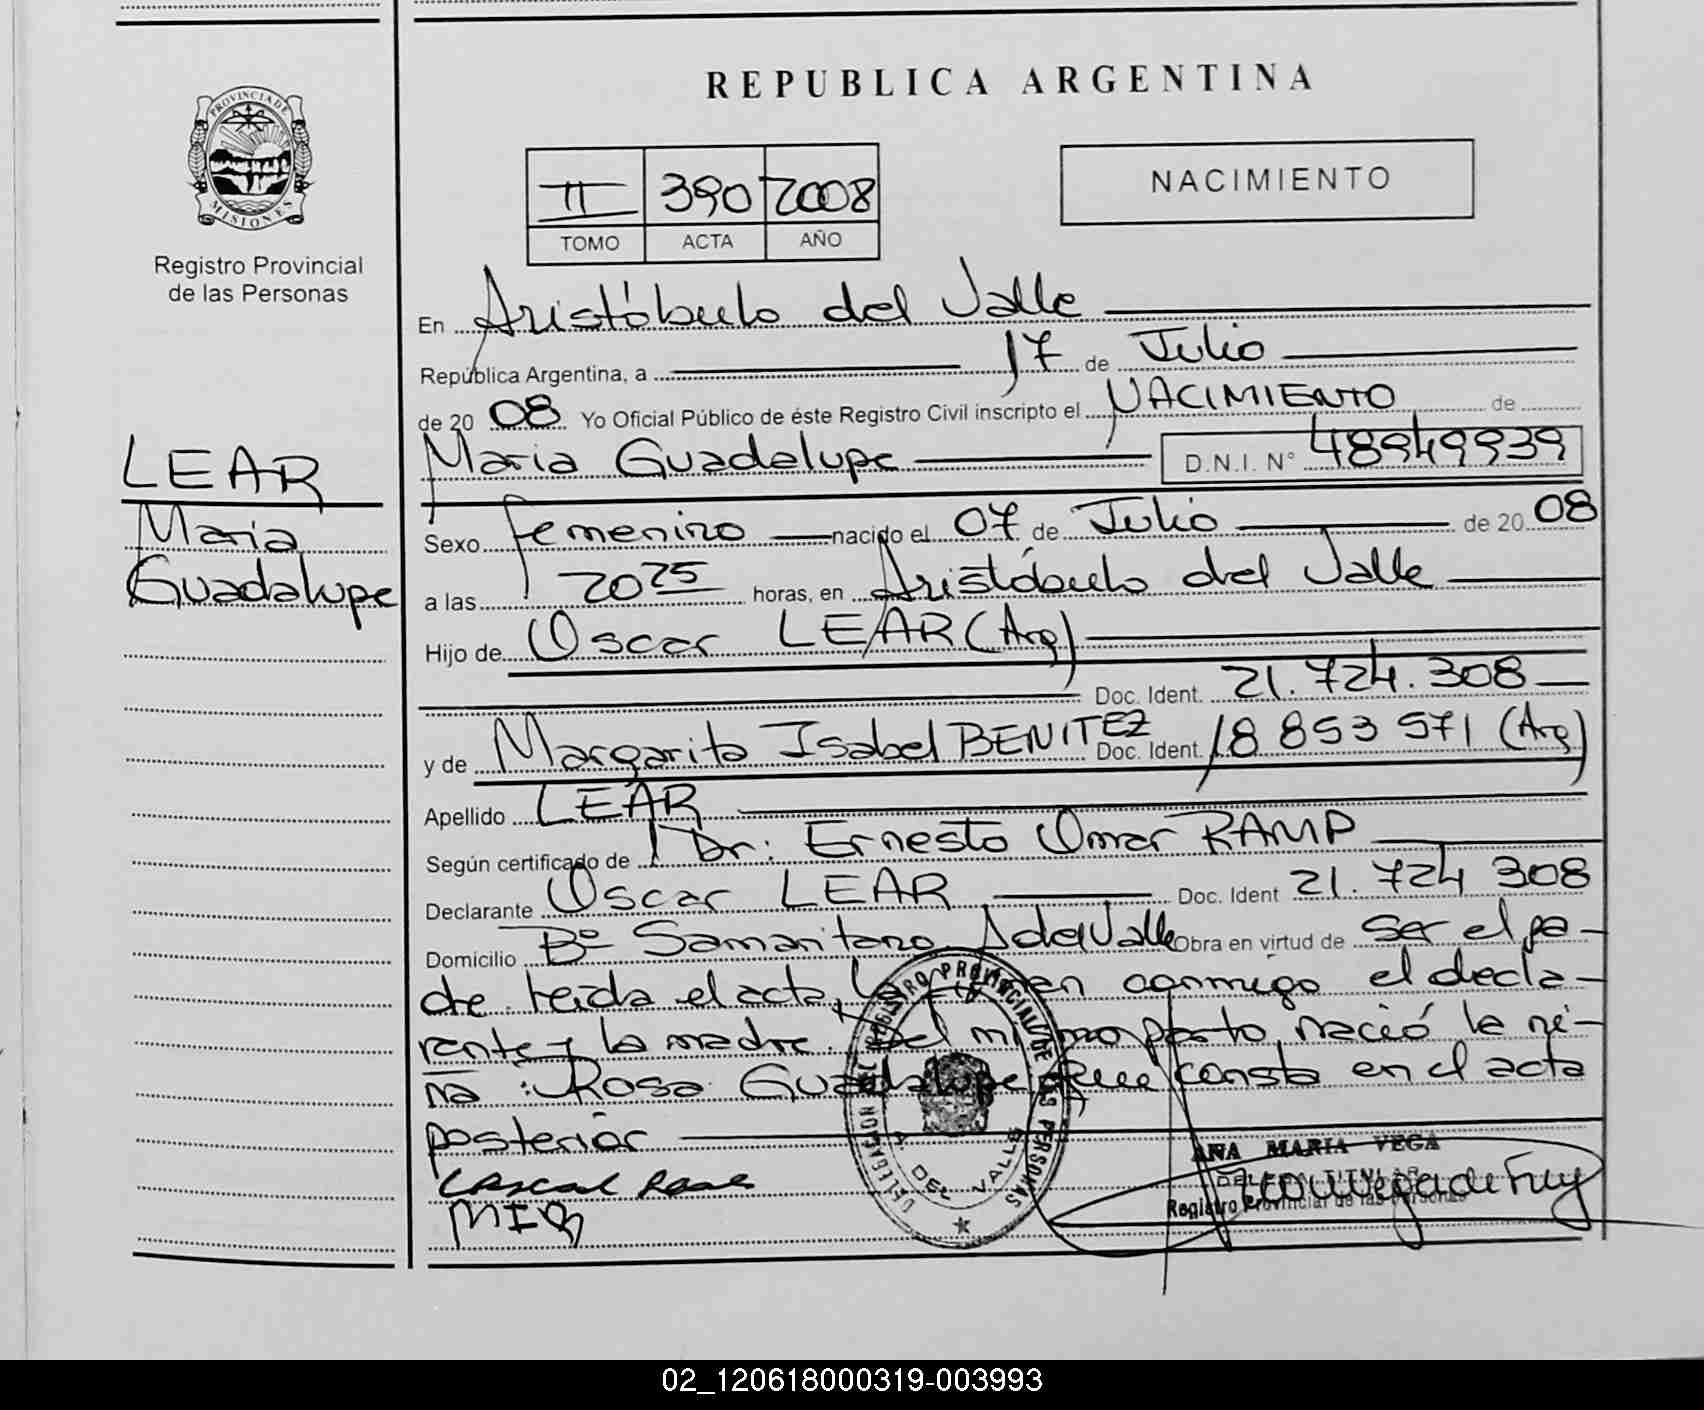 REPUBLICA ARGENTINA
PROVINCIA DE MISIONES
Registro Provincial
de las Personas
II 390 2008
TOMO ACTA AÑO
NACIMIENTO
En Aristóbulo del Valle
República Argentina, a 17 de Julio
de 20 08 Yo Oficial Público de éste Registro Civil inscripto el NACIMIENTO de
Maria Guadalupe D.N.I. N° 48949939
LEAR
Maria
Guadalupe
Sexo femenino nacido el 07 de Julio de 20 08
a las 2025 horas, en Aristóbulo del Valle
Hijo de Oscar LEAR (Arg)
Doc. Ident. 21.724.308
y de Margarita Isabel BENITEZ Doc. Ident. 18 853 571 (Arg)
Apellido LEAR
Según certificado de Dr: Ernesto Omar RAMP
Declarante Oscar LEAR Doc. Ident 21.724 308
Domicilio B° Samaritano A del Valle Obra en virtud de ser el pa-
dre. Leida el acta, la firman conmigo el decla-
rante y la madre. Del mismo parto nació la ni-
ña: Rosa Guadalupe que consta en el acta
posterior
DELEGACION DEL REGISTRO PROVINCIAL DE LAS PERSONAS
A. DEL VALLE
ANA MARIA VEGA
DELEG. TITULAR
Registro Provincial de las Personas
02_120618000319-003993